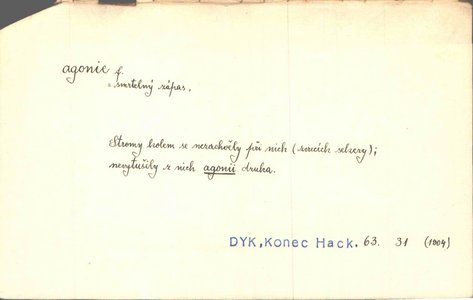 agonie f.
= smrtelný zápas.
Stromy kolem se nezachvěly při nich ( selzery);
nevytušily z nich agonii druha.
DYK, Konec Hack. 63. 31 (1904)